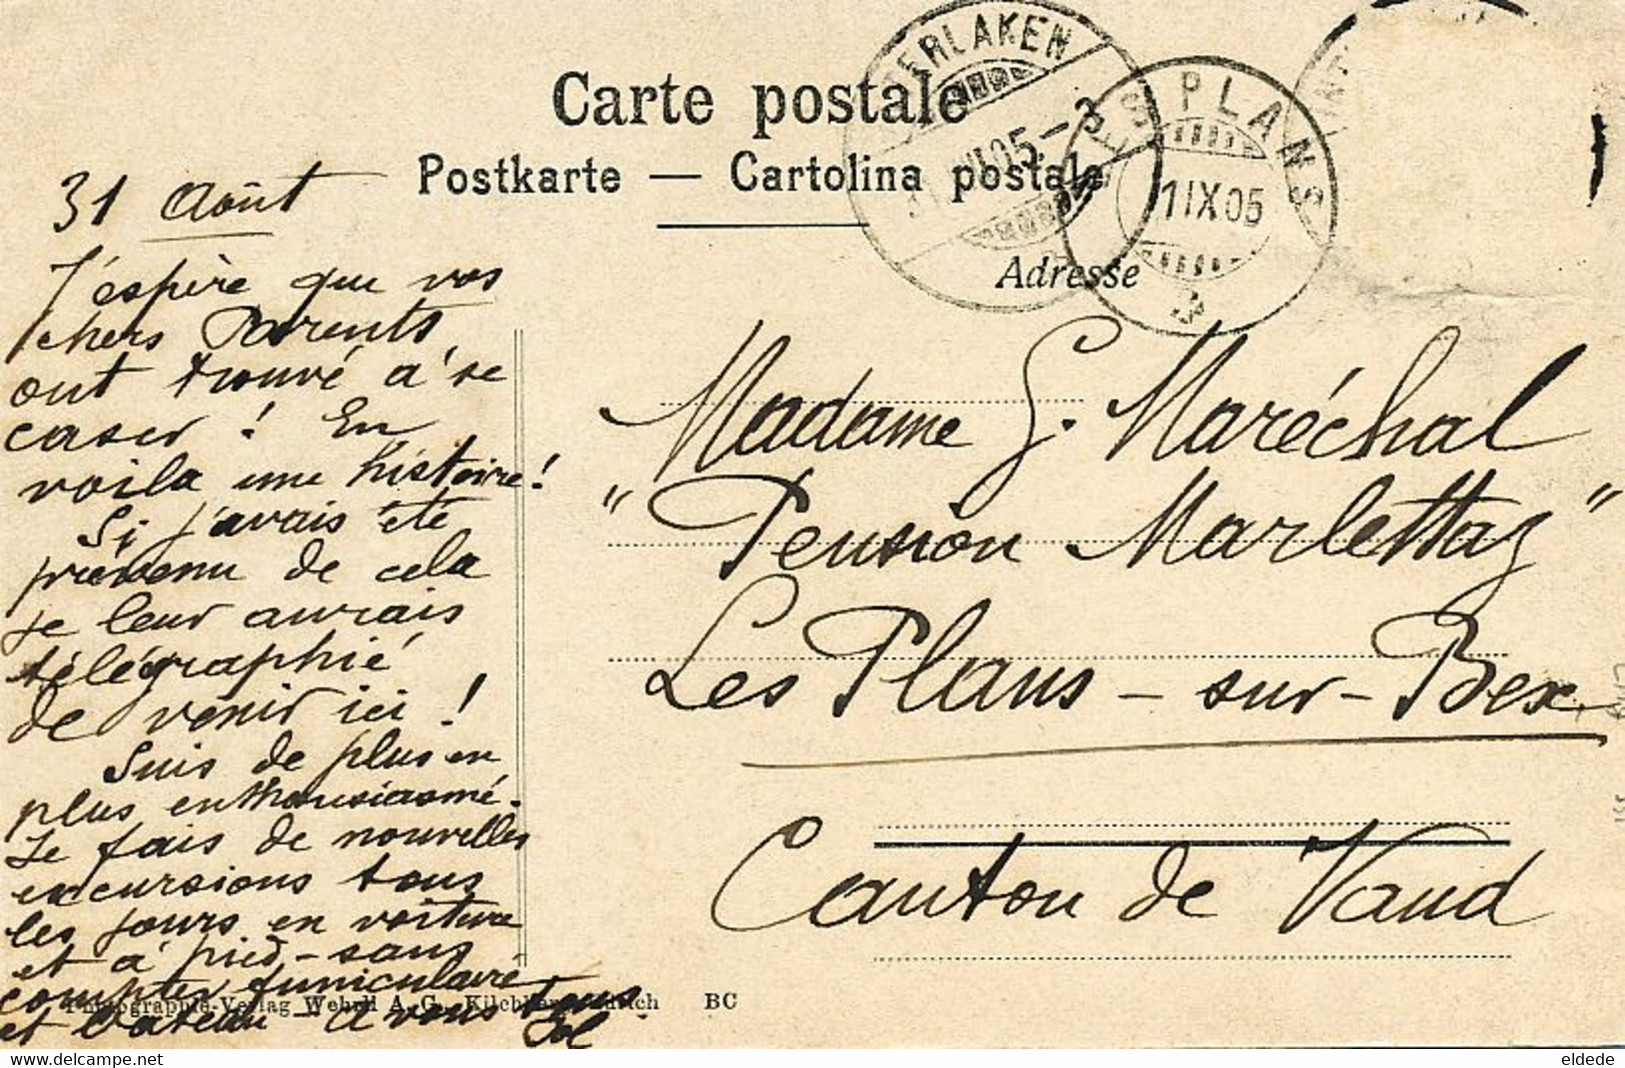 Carte postale
Postkarte — Cartolina postale
Adresse
ERLAKEN
05-3
LES PLANS
1 IX 05
31 Août
J'éspère que vos
chers Parents
ont trouvé à se
caser ! En
voila une histoire !
Si j'avais été
prévenu de cela
je leur aurais
télégraphié
de venir ici !
Suis de plus en
plus enthousiasmé.
Je fais de nouvelles
excursions tous
les jours en voiture
et à pied - sans
compter funiculaire
et bateau - à vous tous
Madame G. Maréchal
"Pension Marlettaz"
Les Plans - sur - Bex
Canton de Vaud
Photographie-Verlag Wehrli A. G., Kilchberg Zürich BC
eldede